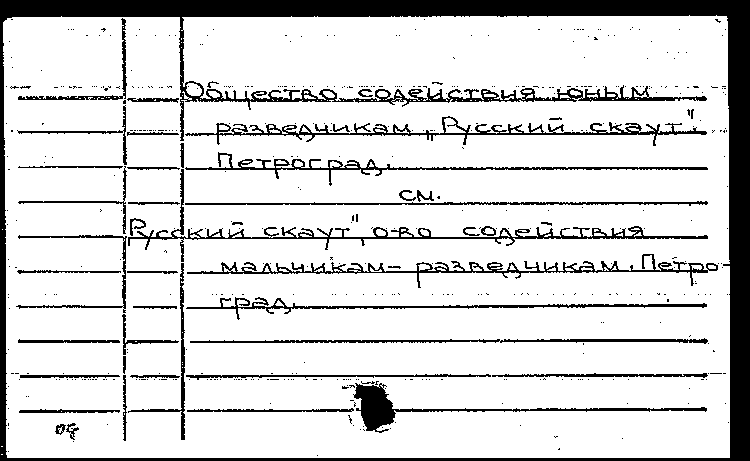 Общество содействия юным
разведчикам „Русский скаут".
Петроград.
см.
„Русский скаут", о-во содействия
мальчикам-разведчикам. Петро-
град.